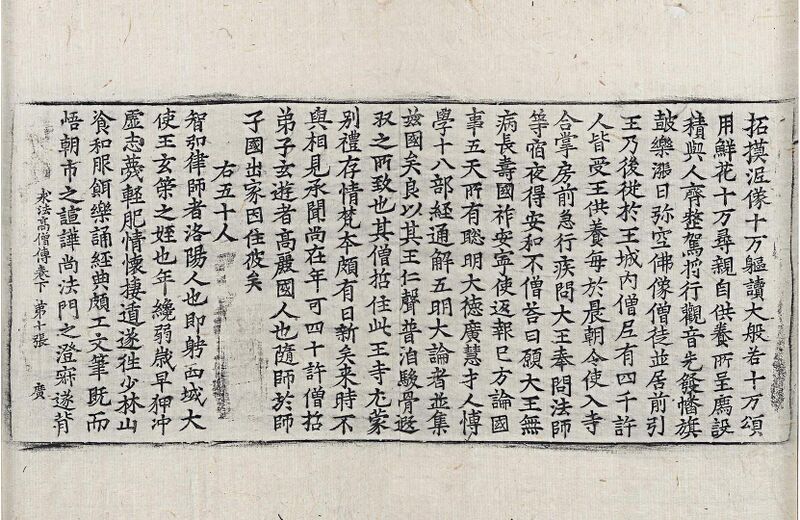 拓摸泥像十万軀讀大般若十万頌
用鮮花十万尋親自供養所呈薦設
積與人齊整駕將行觀音先發幡旗
皷樂漲日弥空佛像僧徒並居前引
王乃後従於王城內僧尼有四千許
人皆受王供養每於晨朝令使入寺
合掌房前急行疾問大王奉問法師
等宿夜得安和不僧荅曰願大王無
病長壽國祚安寧使返報已方論國
事五天所有聡明大德廣慧才人博
學十八部經通解五明大論者並集
茲國矣良以其王仁聲普洎駿骨遐
収之所致也其僧哲住此王寺尤蒙
別禮存情梵本頗有日新矣来時不
與相見承聞尚在年可四十許僧哲
弟子玄遊者高麗國人也隨師於師
子國出家因住彼矣
右五十人
智弘律師者洛陽人也即聘西域大
使王玄策之姪也年纔弱歳早狎冲
虛志蔑輕肥情懷棲遁遂徃少林山
飡和服餌樂誦經典頗工文筆既而
悟朝市之諠譁尚法門之澄寂遂背
求法高僧傳卷下 第十張 廣